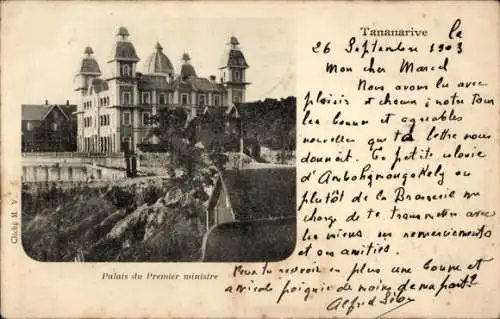 Tananarive
le
26 Septembre 1903
Mon cher Marcel
Nous avons lu avec
plaisir et chacun à notre tour
les bonnes et agréables
nouvelles que ta lettre nous
donnait. La petite colonie
d'Ambohijanahary ou
plutôt de la Brasserie me
charge de te transmettre avec
les miens nos remerciements
et nos amitiés.
au revoir en plus une bonne et
amicale poignée de mains de ma part
Alfred
Cliché M. V.
Palais du Premier ministre